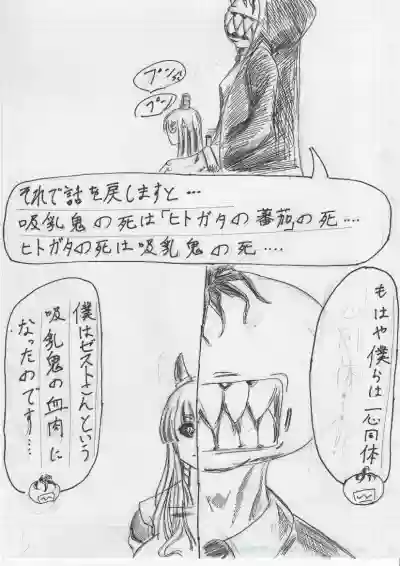 プンッ
プンッ
それで話を戻しますと…
吸乳鬼の死は「ヒトガタの蕃茄」の死…
ヒトガタの死は吸乳鬼の死…
もはや僕らは一心同体
僕はゼストさんという
吸乳鬼の血肉に
なったのです…